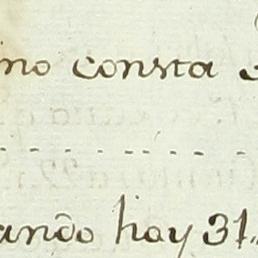 ino consta
ando hay 31.